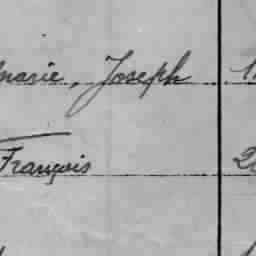 marie, Joseph
François